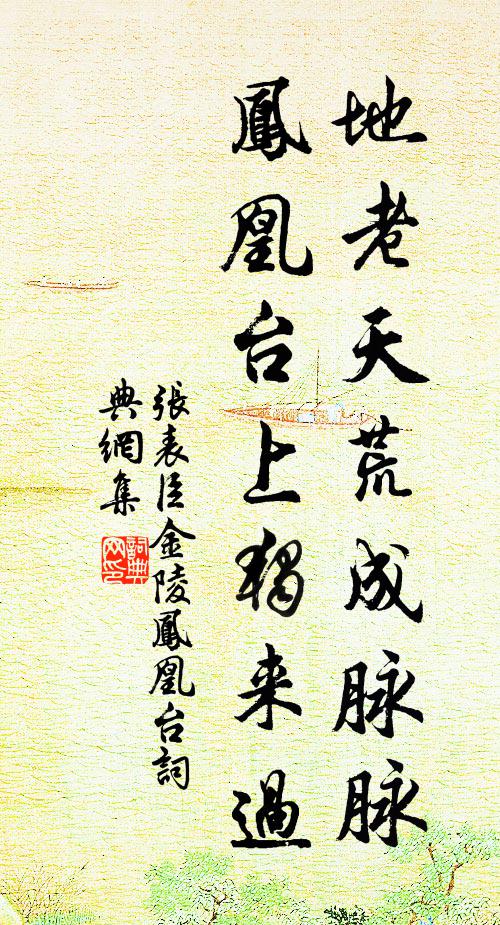 地老天荒成脉脉
鳳凰台上獨来過
張表臣金陵鳳凰台詞
典網集
詞典网印